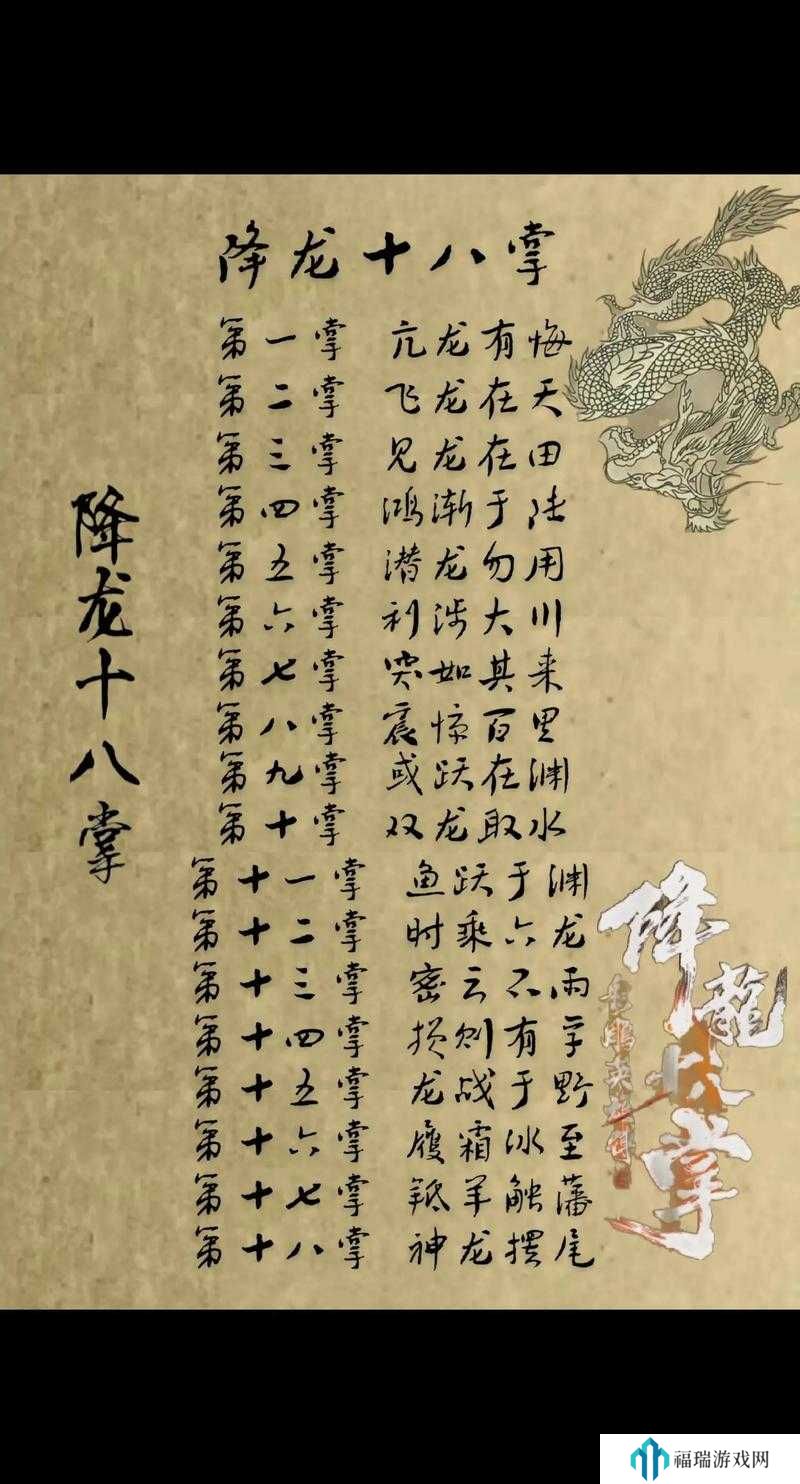 降龙十八掌
第一掌 亢龙有悔
第二掌 飞龙在天
第三掌 见龙在田
第四掌 鸿渐于陆
第五掌 潜龙勿用
第六掌 利涉大川
第七掌 突如其来
第八掌 震惊百里
第九掌 或跃在渊
第十掌 双龙取水
第十一掌 鱼跃于渊
第十二掌 时乘六龙
第十三掌 密云不雨
第十四掌 损则有孚
第十五掌 龙战于野
第十六掌 履霜冰至
第十七掌 羝羊触藩
第十八掌 神龙摆尾
降龙十八掌
降龍十八掌
福瑞游戏网